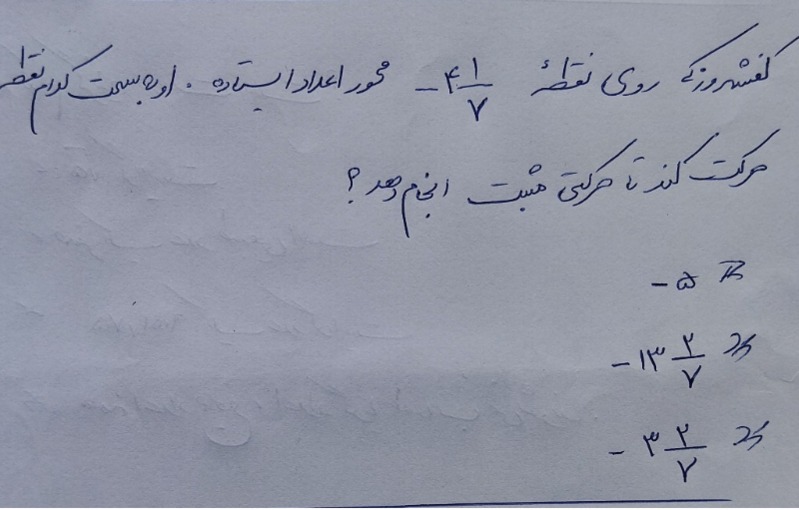 کفشدوزک روی نقطهٔ -۴ ۱/۷ محور اعداد ایستاده. او به سمت کدام نقطه
حرکت کند تا حرکتی مثبت انجام دهد؟
-۵
-۱۳ ۲/۷
-۳ ۲/۷